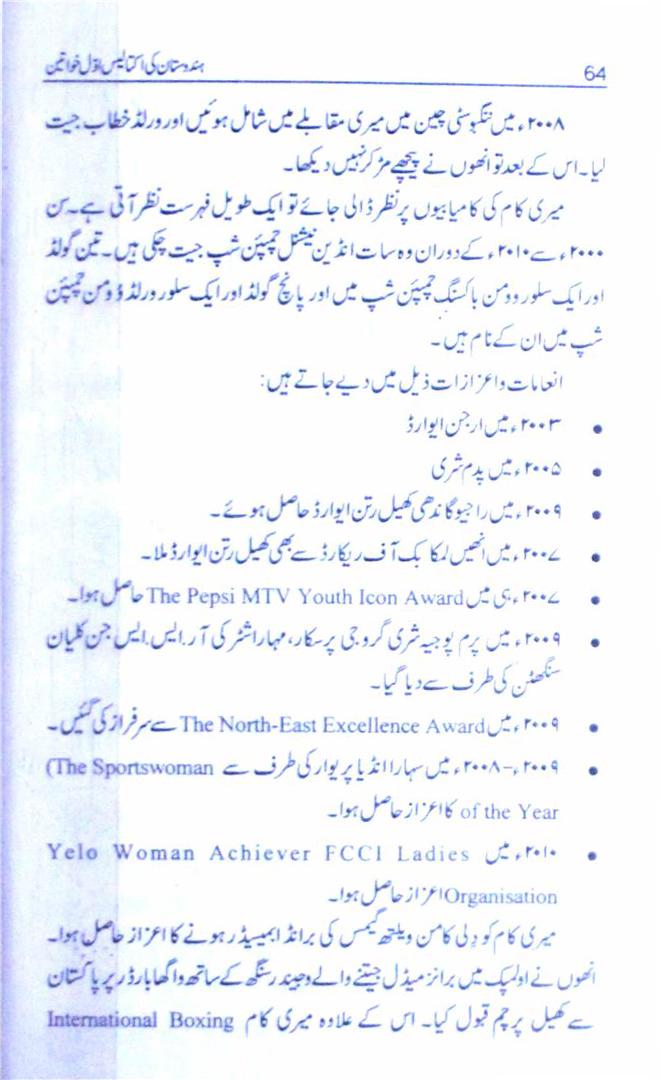 64 ہندوستان کی اکتالیس اوّل خواتین
۲۰۰۸ء میں ننگبو سٹی چین میں میری مقابلے میں شامل ہوئیں اور ورلڈ خطاب جیت
لیا۔ اس کے بعد تو انھوں نے پیچھے مڑ کر نہیں دیکھا۔
میری کام کی کامیابیوں پر نظر ڈالی جائے تو ایک طویل فہرست نظر آتی ہے۔ سن
۲۰۰۰ء سے ۲۰۱۰ء کے دوران وہ سات انڈین نیشنل چمپئن شپ جیت چکی ہیں۔ تین گولڈ
اور ایک سلور وومن باکسنگ چمپئن شپ میں اور پانچ گولڈ اور ایک سلور ورلڈ وومن چمپئن
شپ میں ان کے نام ہیں۔
انعامات و اعزازات ذیل میں دیے جاتے ہیں:
• ۲۰۰۳ء میں ارجن ایوارڈ
• ۲۰۰۵ء میں پدم شری
• ۲۰۰۹ء میں راجیو گاندھی کھیل رتن ایوارڈ حاصل ہوئے۔
• ۲۰۰۷ء میں انھیں لمکا بک آف ریکارڈ سے بھی کھیل رتن ایوارڈ ملا۔
• ۲۰۰۷ء ہی میں The Pepsi MTV Youth Icon Award حاصل ہوا۔
• ۲۰۰۹ء میں پرم پوجیہ شری گروجی پرسکار، مہاراشٹر کی آر۔ ایس۔ ایس جن کلیان
سنگھٹن کی طرف سے دیا گیا۔
• ۲۰۰۹ء میں The North-East Excellence Award سے سرفراز کی گئیں۔
• ۲۰۰۹ء-۲۰۰۸ء میں سہارا انڈیا پریوار کی طرف سے The Sportswoman)
of the Year کا اعزاز حاصل ہوا۔
• ۲۰۱۰ء میں Yelo Woman Achiever FCCI Ladies
Organisation اعزاز حاصل ہوا۔
میری کام کو دِلی کامن ویلتھ گیمس کی برانڈ ایمبیسیڈر ہونے کا اعزاز حاصل ہوا۔
انھوں نے اولمپک میں برانز میڈل جیتنے والے وجیندر سنگھ کے ساتھ واگھا بارڈر پر پاکستان
سے کھیل پرچم قبول کیا۔ اس کے علاوہ میری کام International Boxing